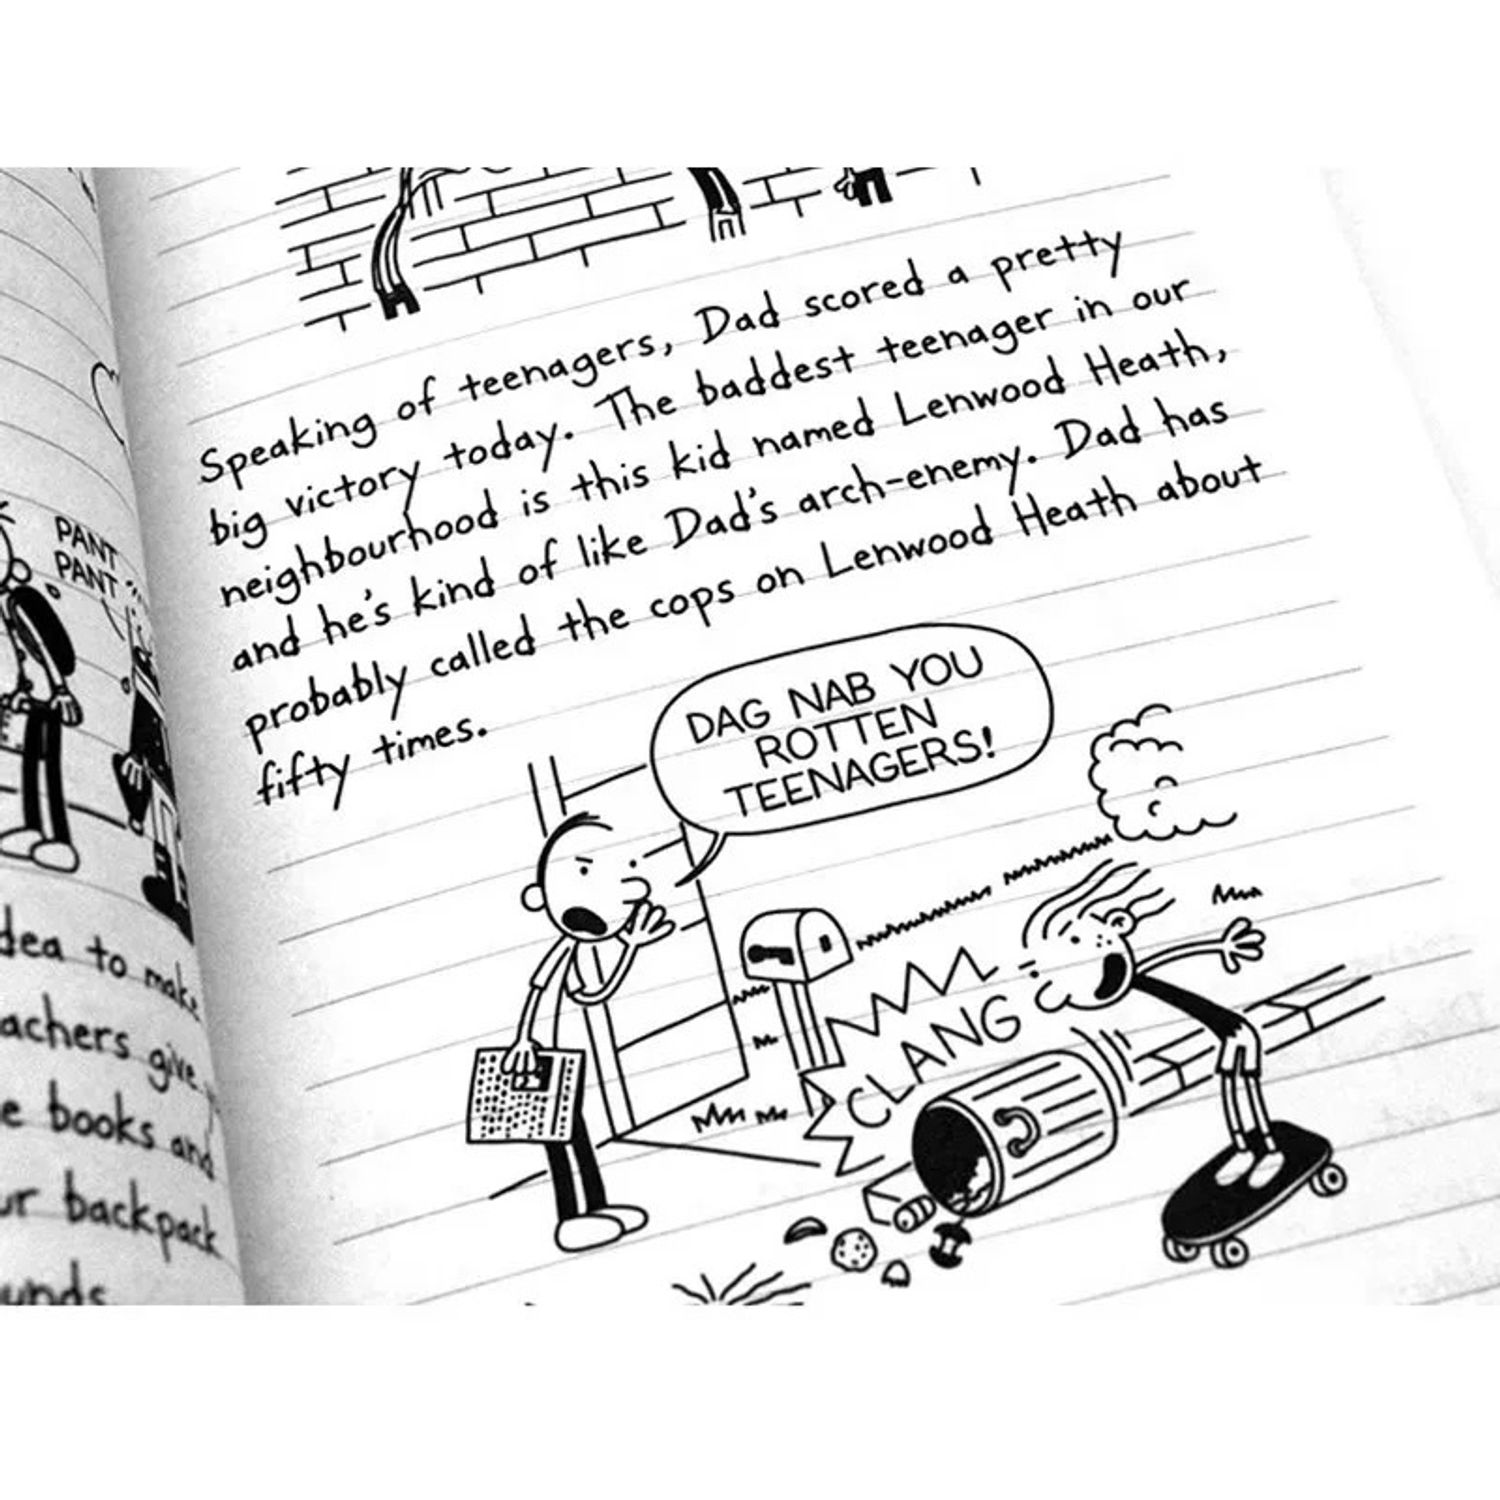 Speaking of teenagers, Dad scored a pretty
big victory today. The baddest teenager in our
neighbourhood is this kid named Lenwood Heath,
and he's kind of like Dad's arch-enemy. Dad has
probably called the cops on Lenwood Heath about
fifty times.
DAG NAB YOU
ROTTEN
TEENAGERS!
CLANG
PANT
PANT
to
give
books and
backpack